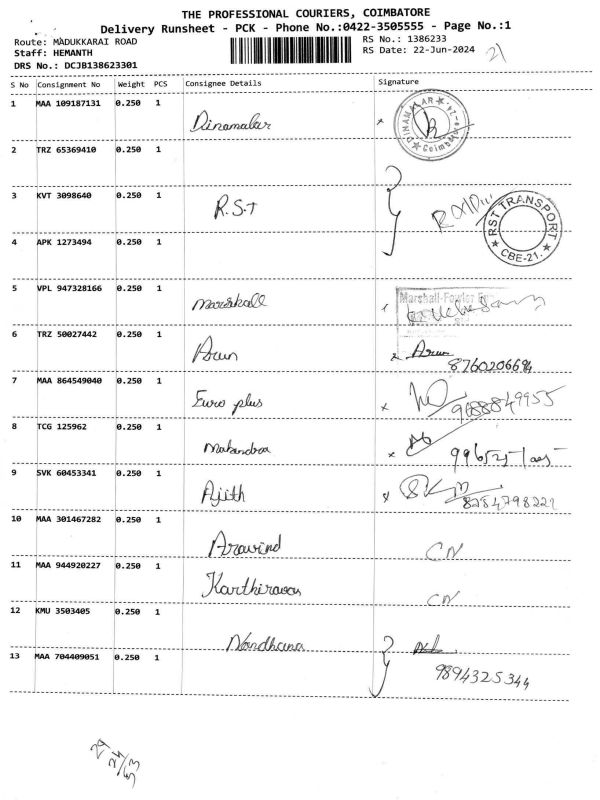 THE PROFESSIONAL COURIERS, COIMBATORE
Delivery Runsheet - PCK - Phone No.:0422-3505555 - Page No.:1
Route: MADUKKARAI ROAD
RS No.: 1386233
Staff: HEMANTH
RS Date: 22-Jun-2024
DRS No.: DCJB138623301
S No Consignment No Weight PCS Consignee Details Signature
1 MAA 109187131 0.250 1 Dinamalar
DINAMALAR
Coimbatore
2 TRZ 65369410 0.250 1
3 KVT 3098640 0.250 1 R.S.T
RST TRANSPORT
CBE-21.
4 APK 1273494 0.250 1
5 VPL 947328166 0.250 1 Marshall
Marshall-Fowler
6 TRZ 50027442 0.250 1 Arun Arun
8760206694
7 MAA 864549040 0.250 1 Euro plus
9688849955
8 TCG 125962 0.250 1 Mahendra
9 SVK 60453341 0.250 1 Ajith
10 MAA 301467282 0.250 1 Aravind CN
11 MAA 944920227 0.250 1 Karthiravan CN
12 KMU 3503405 0.250 1 Nandhana
13 MAA 704409051 0.250 1 9894325344